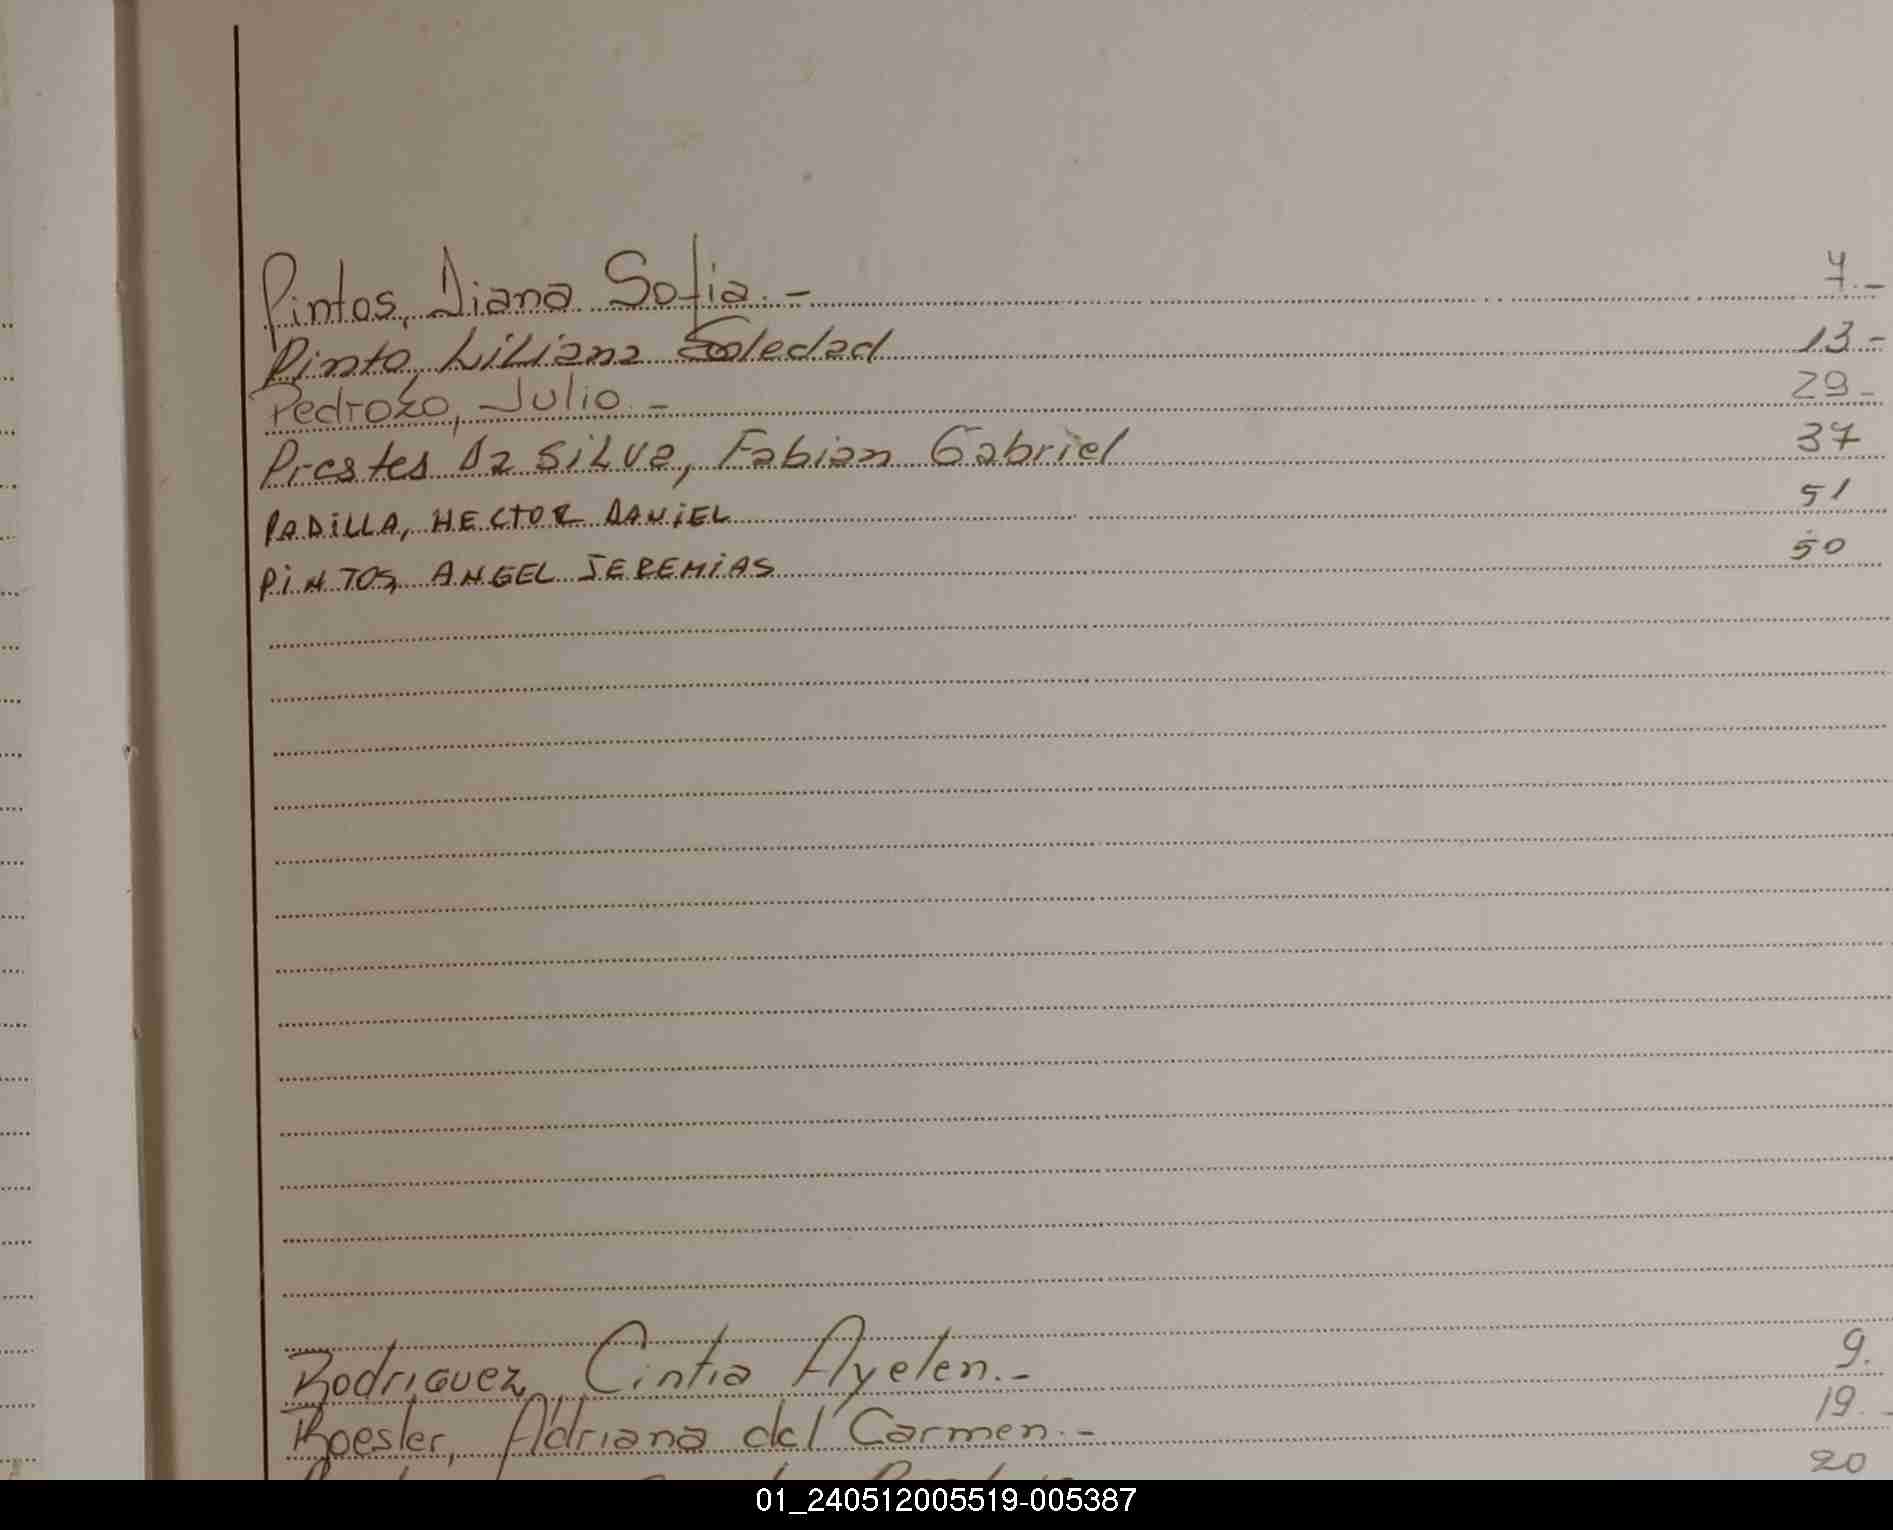 Pintos, Diana Sofia.- 7.-
Pinto, Liliana Soledad 13-
Pedrozo, Julio.- 29-
Prestes Da Silva, Fabian Gabriel 37
PADILLA, HECTOR DANIEL 51
PINTOS, ANGEL JEREMIAS 50
Rodriguez, Cintia Ayelen.- 9.
Roesler, Adriana del Carmen.- 19.-
20
01_240512005519-005387